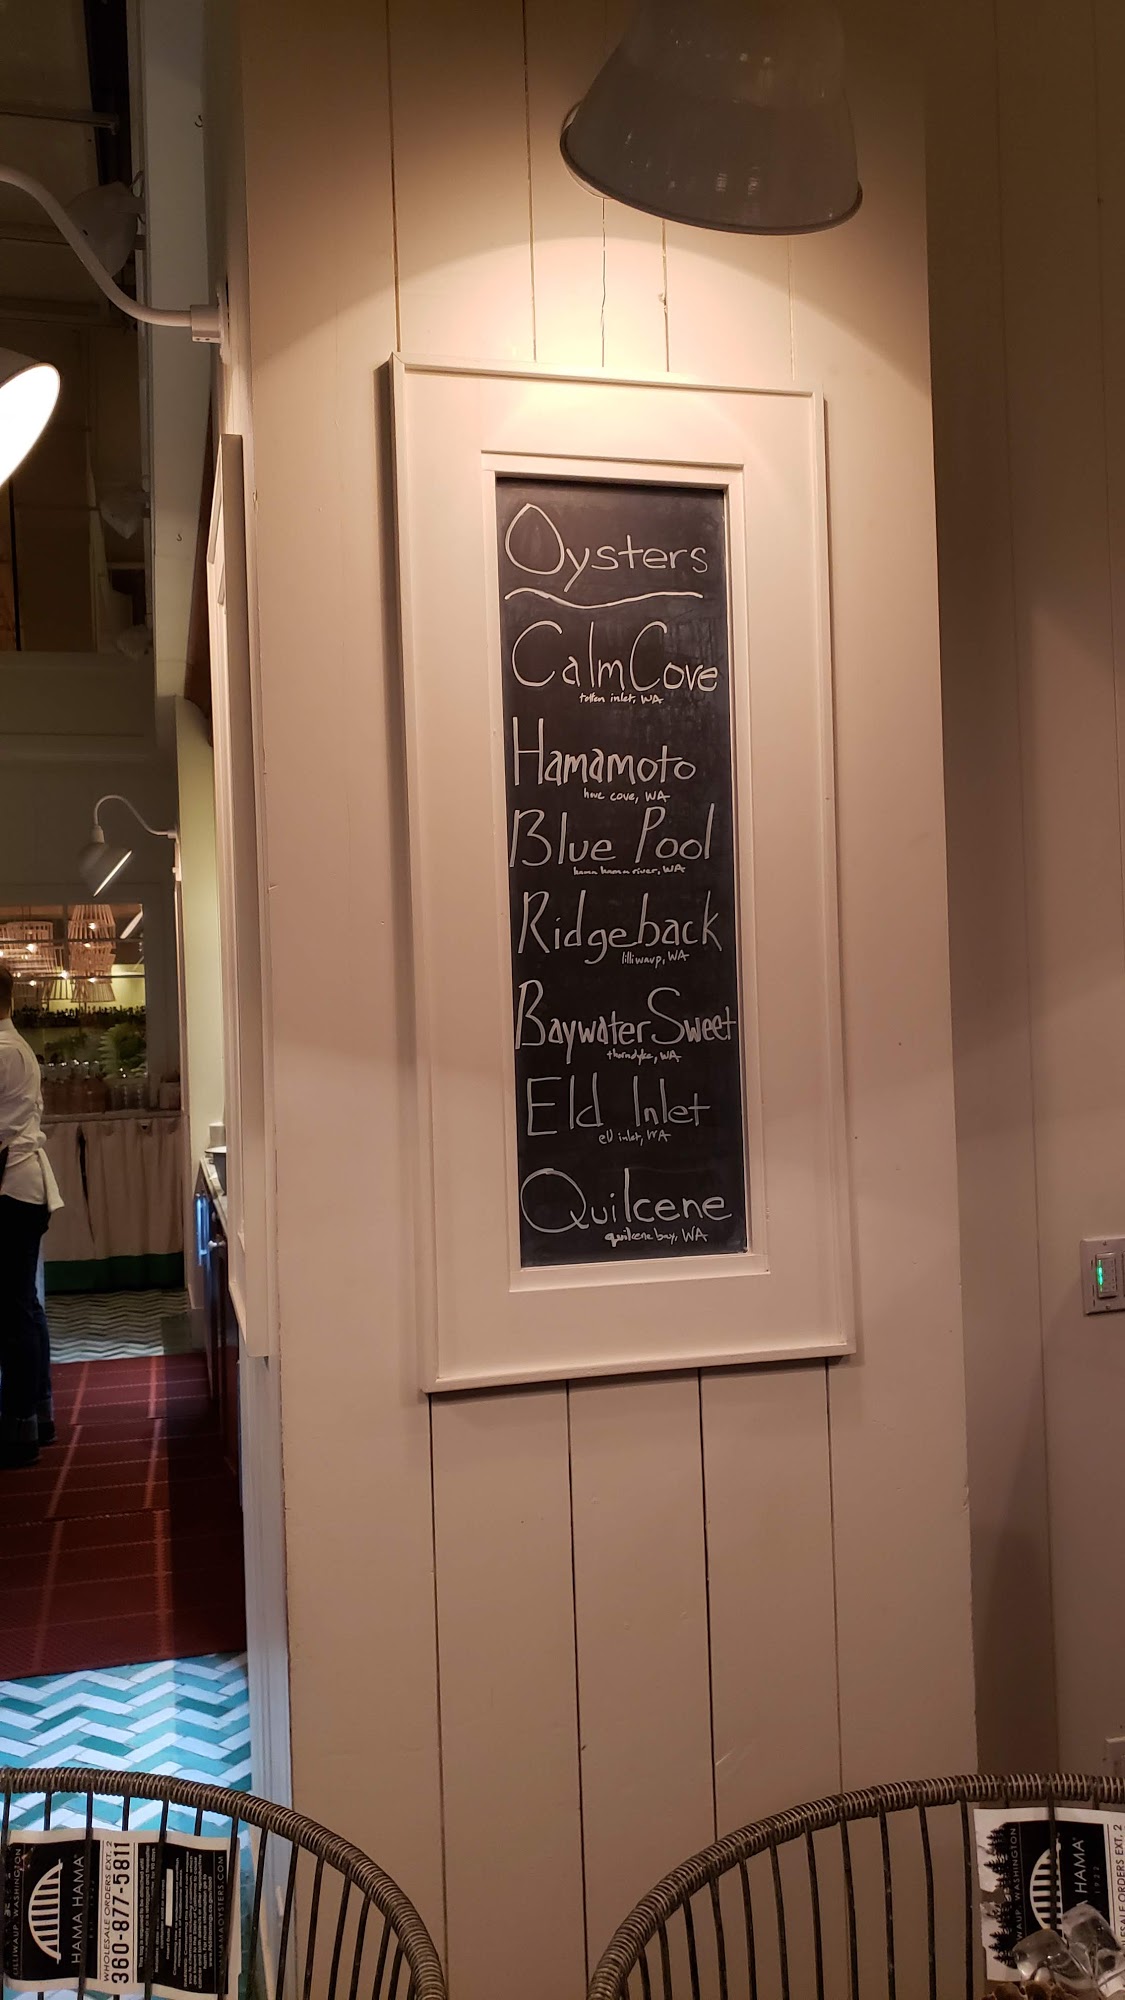 Oysters
Calm Cove
totten inlet, WA
Hamamoto
WA
Blue Pool
hama hama river, WA
Ridgeback
lilliwaup, WA
Baywater Sweet
thorndyke, WA
Eld Inlet
eld inlet, WA
Quilcene
quilcene bay, WA
LILLIWAUP, WASHINGTON
HAMA HAMA
WHOLESALE ORDERS EXT. 2
360-877-5811
HAMAOYSTERS.COM
WASHINGTON
HAMA
1922
ORDERS EXT. 2